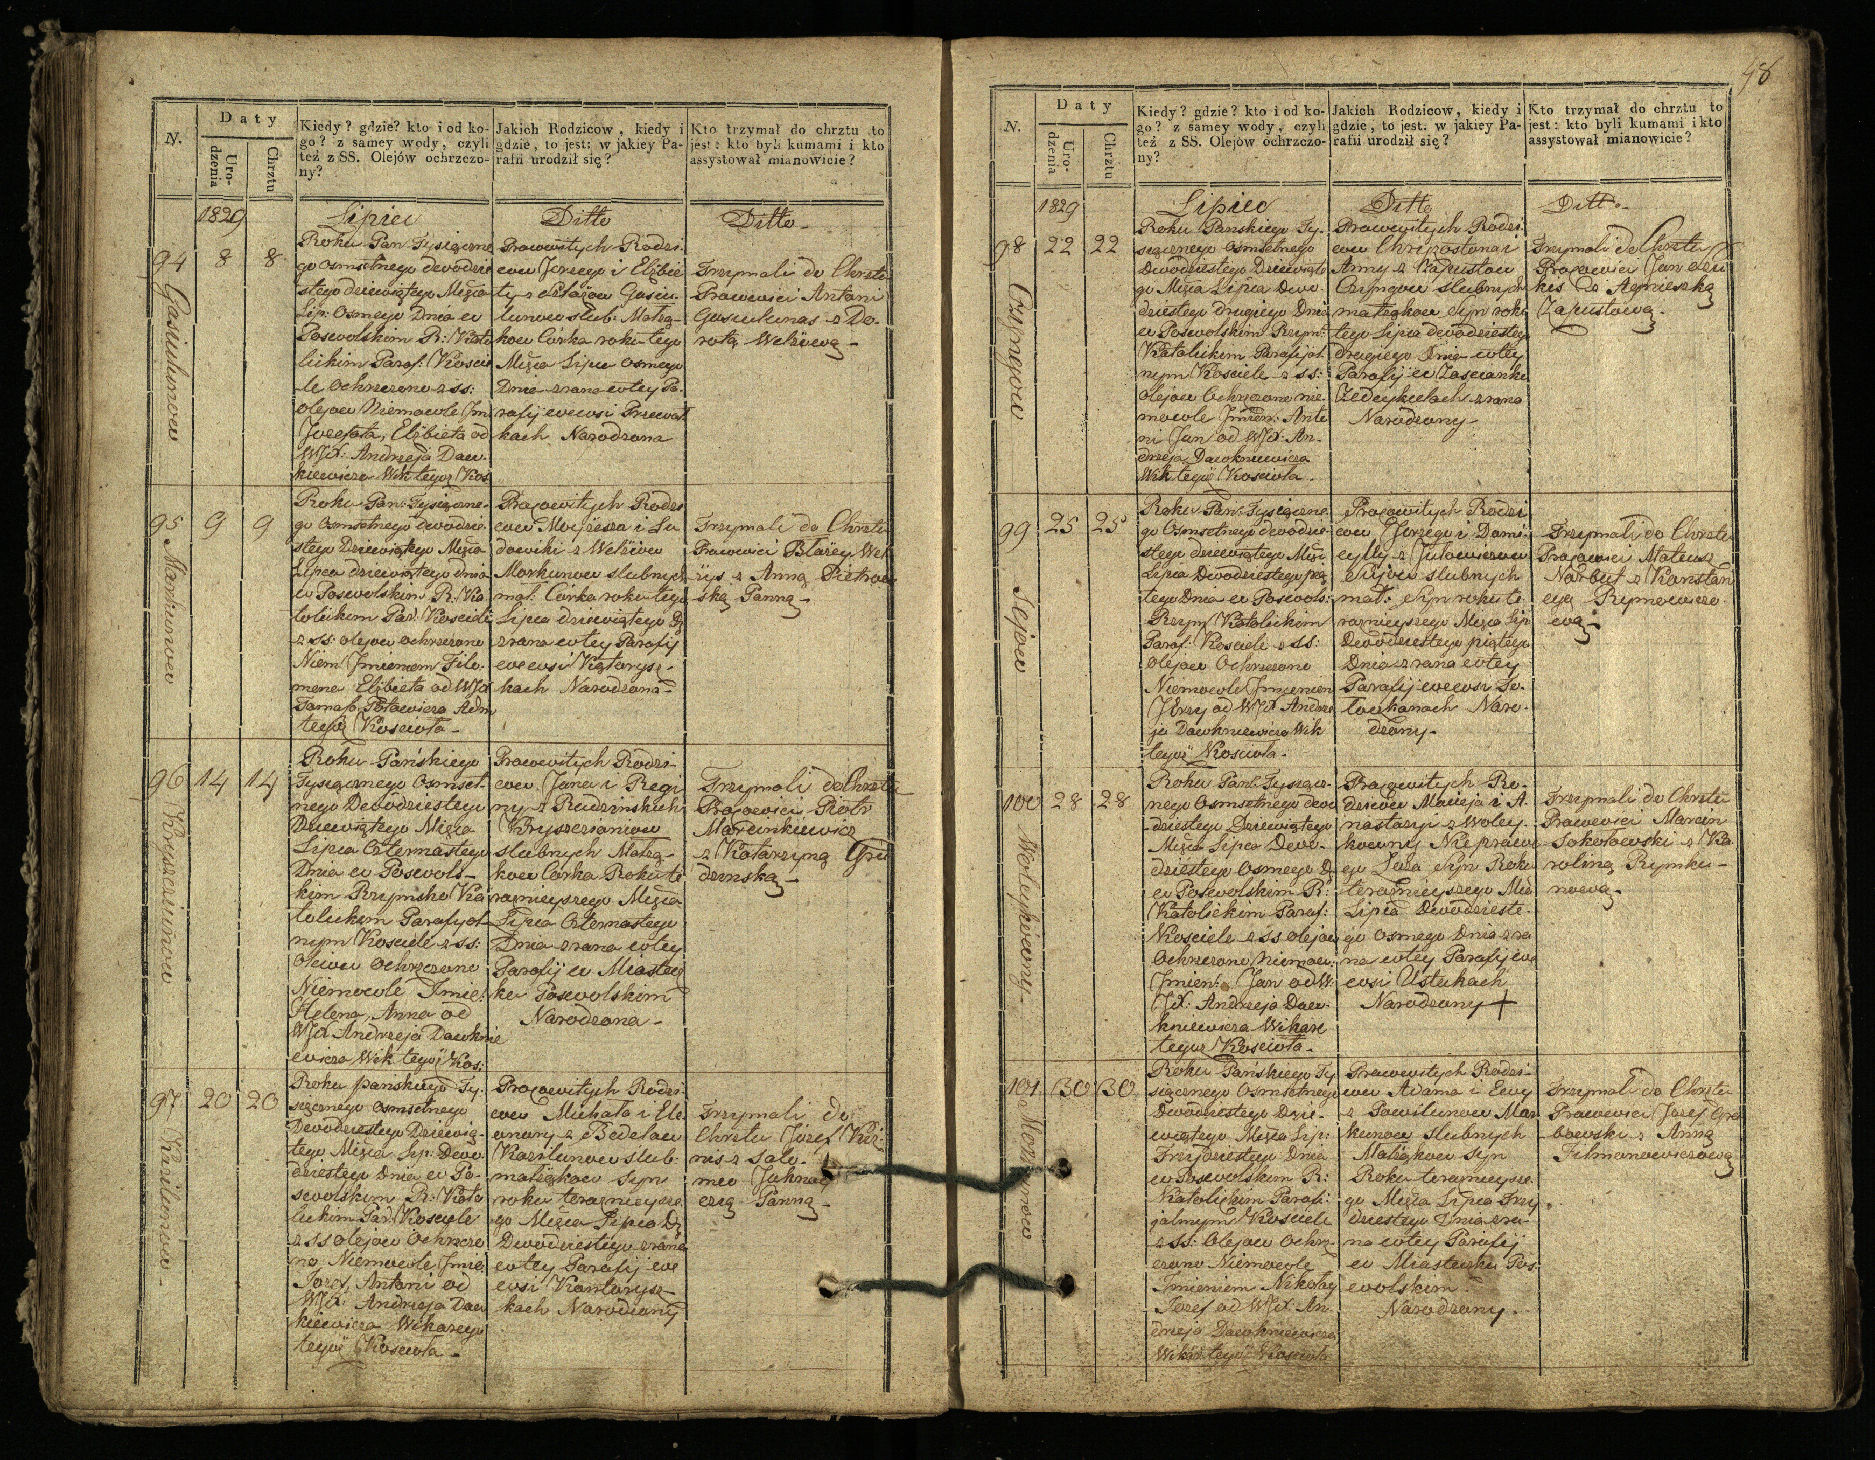 N.
Daty
Urodzenia
Chrztu
Kiedy? gdzie? kto i od ko-
go? z samey wody, czyli
też z SS. Olejów ochrzczo-
ny?
Jakich Rodzicow, kiedy i
gdzie, to jest: w jakiey Pa-
rafii urodził się?
Kto trzymał do chrztu to
jest: kto byli kumami i kto
assystował mianowicie?
1829
Lipiec
Ditto
Ditto
94
8
8
Roku Pan: Tysiączne
go osmsetnego dwódzie
stego dziewiątego Miąca
Lip: Osmego Dnia w
Poswolskim R: Kato
lickim Paraf: Koscie
le Ochrzczono z ss:
olejow Niemowle Jm
Jozefata, Elżbieta od
WJX: Andrzeja Daw-
Wik tegoż Kos
Pracowitych Rodzi-
cow Jerzego i Elżbie
ty z
ślub: Małżą-
kow Córka roku tego
Miąca Lipca osmego
Dnia zrana wtey Pa-
rafij wewsi
kach Narodzona
Trzymali do Chrztu
Pracowici Antoni
z Do-
rotą
95
9
9
Markunow
Roku Pan: Tysiączne-
go Osmsetnego dwodzie-
stego Dziewiątego Miąca
Lipca dziewiątego dnia
w Poswolskim R: Ka
tolickim Par: Kosciele
z ss: olejow ochrzczono
Niem: Jmieniem Filo-
mena Elżbieta od WJX
Adm
tegoż Kosciola-
Pracowitych Rodzi
cow Moyżesza i Lu
dowiki z
Markunow slubnych
mał: Corka roku tego
Lipca dziewiątego D
zrana wtey Parafij
wewsi
kach Narodzona-
Trzymali do Chrztu
Pracowici Błażey
z Anną Pietrow
ską Panną-
96
14
14
Roku Pańskiego
Tysiącznego Osmset-
nego Dwodziestego
Dziewiątego Miąca
Lipca Czternastego
Dnia w Poswols-
kim Rzymsko Ka
tolickim Parafijal-
nym Kosciele z ss:
Olejow Ochrzczono
Niemowle Imie:
Helena, Anna od
WJX Andrzeja Dawknie
wicza Wik tegoż Kos:
Pracowitych Rodzi-
cow Jana i Regi
ny z Rudzinskich
slubnych Małżą-
kow Corka Roku te
raznieyszego Miąca
Lipca Czternastego
Dnia zrana wtey
Parafij w Miastecz
ku Poswolskim
Narodzona-
Trzymali do Chrztu
Pracowici Piotr
Marcinkiewicz
z Katarzyną
97
20
20
Roku pańskiego Ty-
siącznego osmsetnego
Dwodziestego Dziewią-
tego Miąca Lip: Dwo-
dziestego Dnia w Po-
swolskim R: Kato
lickim Par: Kosciele
z ss Olejow Ochrzczo
no Niemowle Jmie
Jozef, Antoni od
WJX: Andrzeja Daw
kiewicza Wikarego
tegoż Kosciola-
Pracowitych Rodzi
cow Michała i Ele
onory z
slub:
małżąkow Syn
roku teraznieysze
go Miąca Lipca D:
Dwodziestego zrana
wtey Parafij we
wsi
kach Narodzony
Trzymali do
Chrztu Józef
z Salo-
meo
Panną-
48
N.
Daty
Urodzenia
Chrztu
Kiedy? gdzie? kto i od ko-
go? z samey wody, czyli
też z SS. Olejów ochrzczo-
ny?
Jakich Rodzicow, kiedy i
gdzie, to jest: w jakiey Pa-
rafii urodził się?
Kto trzymał do chrztu to
jest: kto byli kumami i kto
assystował mianowicie?
1829
Lipiec
Ditto
Ditto
98
22
22
Roku Pańskiego Ty-
siącznego osmsetnego
Dwodziestego Dziewiąte
go Miąca Lipca Dwo-
dziestego drugiego Dnia
w Poswolskim Rzym:
Katolickim Parafijal
nym Kosciele z ss:
Olejow Ochrzczono nie-
mowle Jmien: Anto
ni Jan od WJX: An-
drzeja Dawkniewicza
Wik tegoż Kosciola.
Pracowitych Rodzi
cow Chrizostoma i
Anny z
slubnych
małżąkow Syn roku
tego Lipca dwodziestego
drugiego Dnia wtey
Parafij w Zascianku
zrana
Narodzony-
Trzymali do Chrztu
Pracowici Jan
z Agnieszką
99
25
25
Roku Pan: Tysiączne
go Osmsetnego dwodzie-
stego dziewiątego Mią:
Lipca Dwodziestego pią
tego Dnia w Poswols:
Rzym Katolickim
Paraf: Kosciele z ss:
Olejow Ochrzczono
Niemowle Jmieniem
Jerzy od WJX Andrze
ja Dawkniewicza Wik
tegoż Kosciola-
Pracowitych Rodzi
cow Jerzego i Domi-
cylly z
slubnych
mał: Syn roku te
raznieyszego Miąca Lip
Dwodziestego piątego
Dnia zrana wtey
Parafij wewsi
Naro-
dzony-
Trzymali do Chrztu
Pracowici Mateusz
Narbut z Konstan
cyą
100
28
28
Roku Pan: Tysiącz-
nego Osmsetnego dwu
dziestego Dziewiątego
Miąca Lipca Dwo-
dziestego Osmego D
w Poswolskim R:
Katolickim Paraf:
Kosciele z ss olejow
Ochrzczono Niemow:
Jmien: Jan od W:
JX: Andrzeja Daw-
kniewicza Wikare
tegoż Kosciola-
Pracowitych Ro-
dzicow Macieja i A-
nastazyi
go Łoża Syn Roku
teraznieyszego Mią
Lipca Dwodzieste-
go Osmego Dnia zra
na wtey Parafij we
wsi Ustukach
Narodzony +
Trzymali do Chrztu
Pracowici Marcin
Sokołowski z Ka
roliną
101
30
30
Roku Pańskiego Ty
siącznego Osmsetnego
Dwodziestego Dzie-
wiątego Miąca Lip:
Trzydziestego Dnia
w Poswolskim R:
Katolickim Parafi-
jalnym Kosciele
z ss: Olejow Ochrz-
czono Niemowle
Imieniem Nikodey
Jozef od WJX: An-
drzeja Dawkniewicza
Wikar tegoż Kosciola
Pracowitych Rodzi-
cow Adama i Ewy
z Mar
kunow slubnych
Małżąkow Syn
Roku teraznieysze
go Miąca Lipca Trzy
dziestego Dnia zra-
na wtey Parafij
w Miasteczku Pos-
wolskim.
Narodzony.
Trzymali do Chrztu
Pracowici Jozef Gra
bowski z Anną